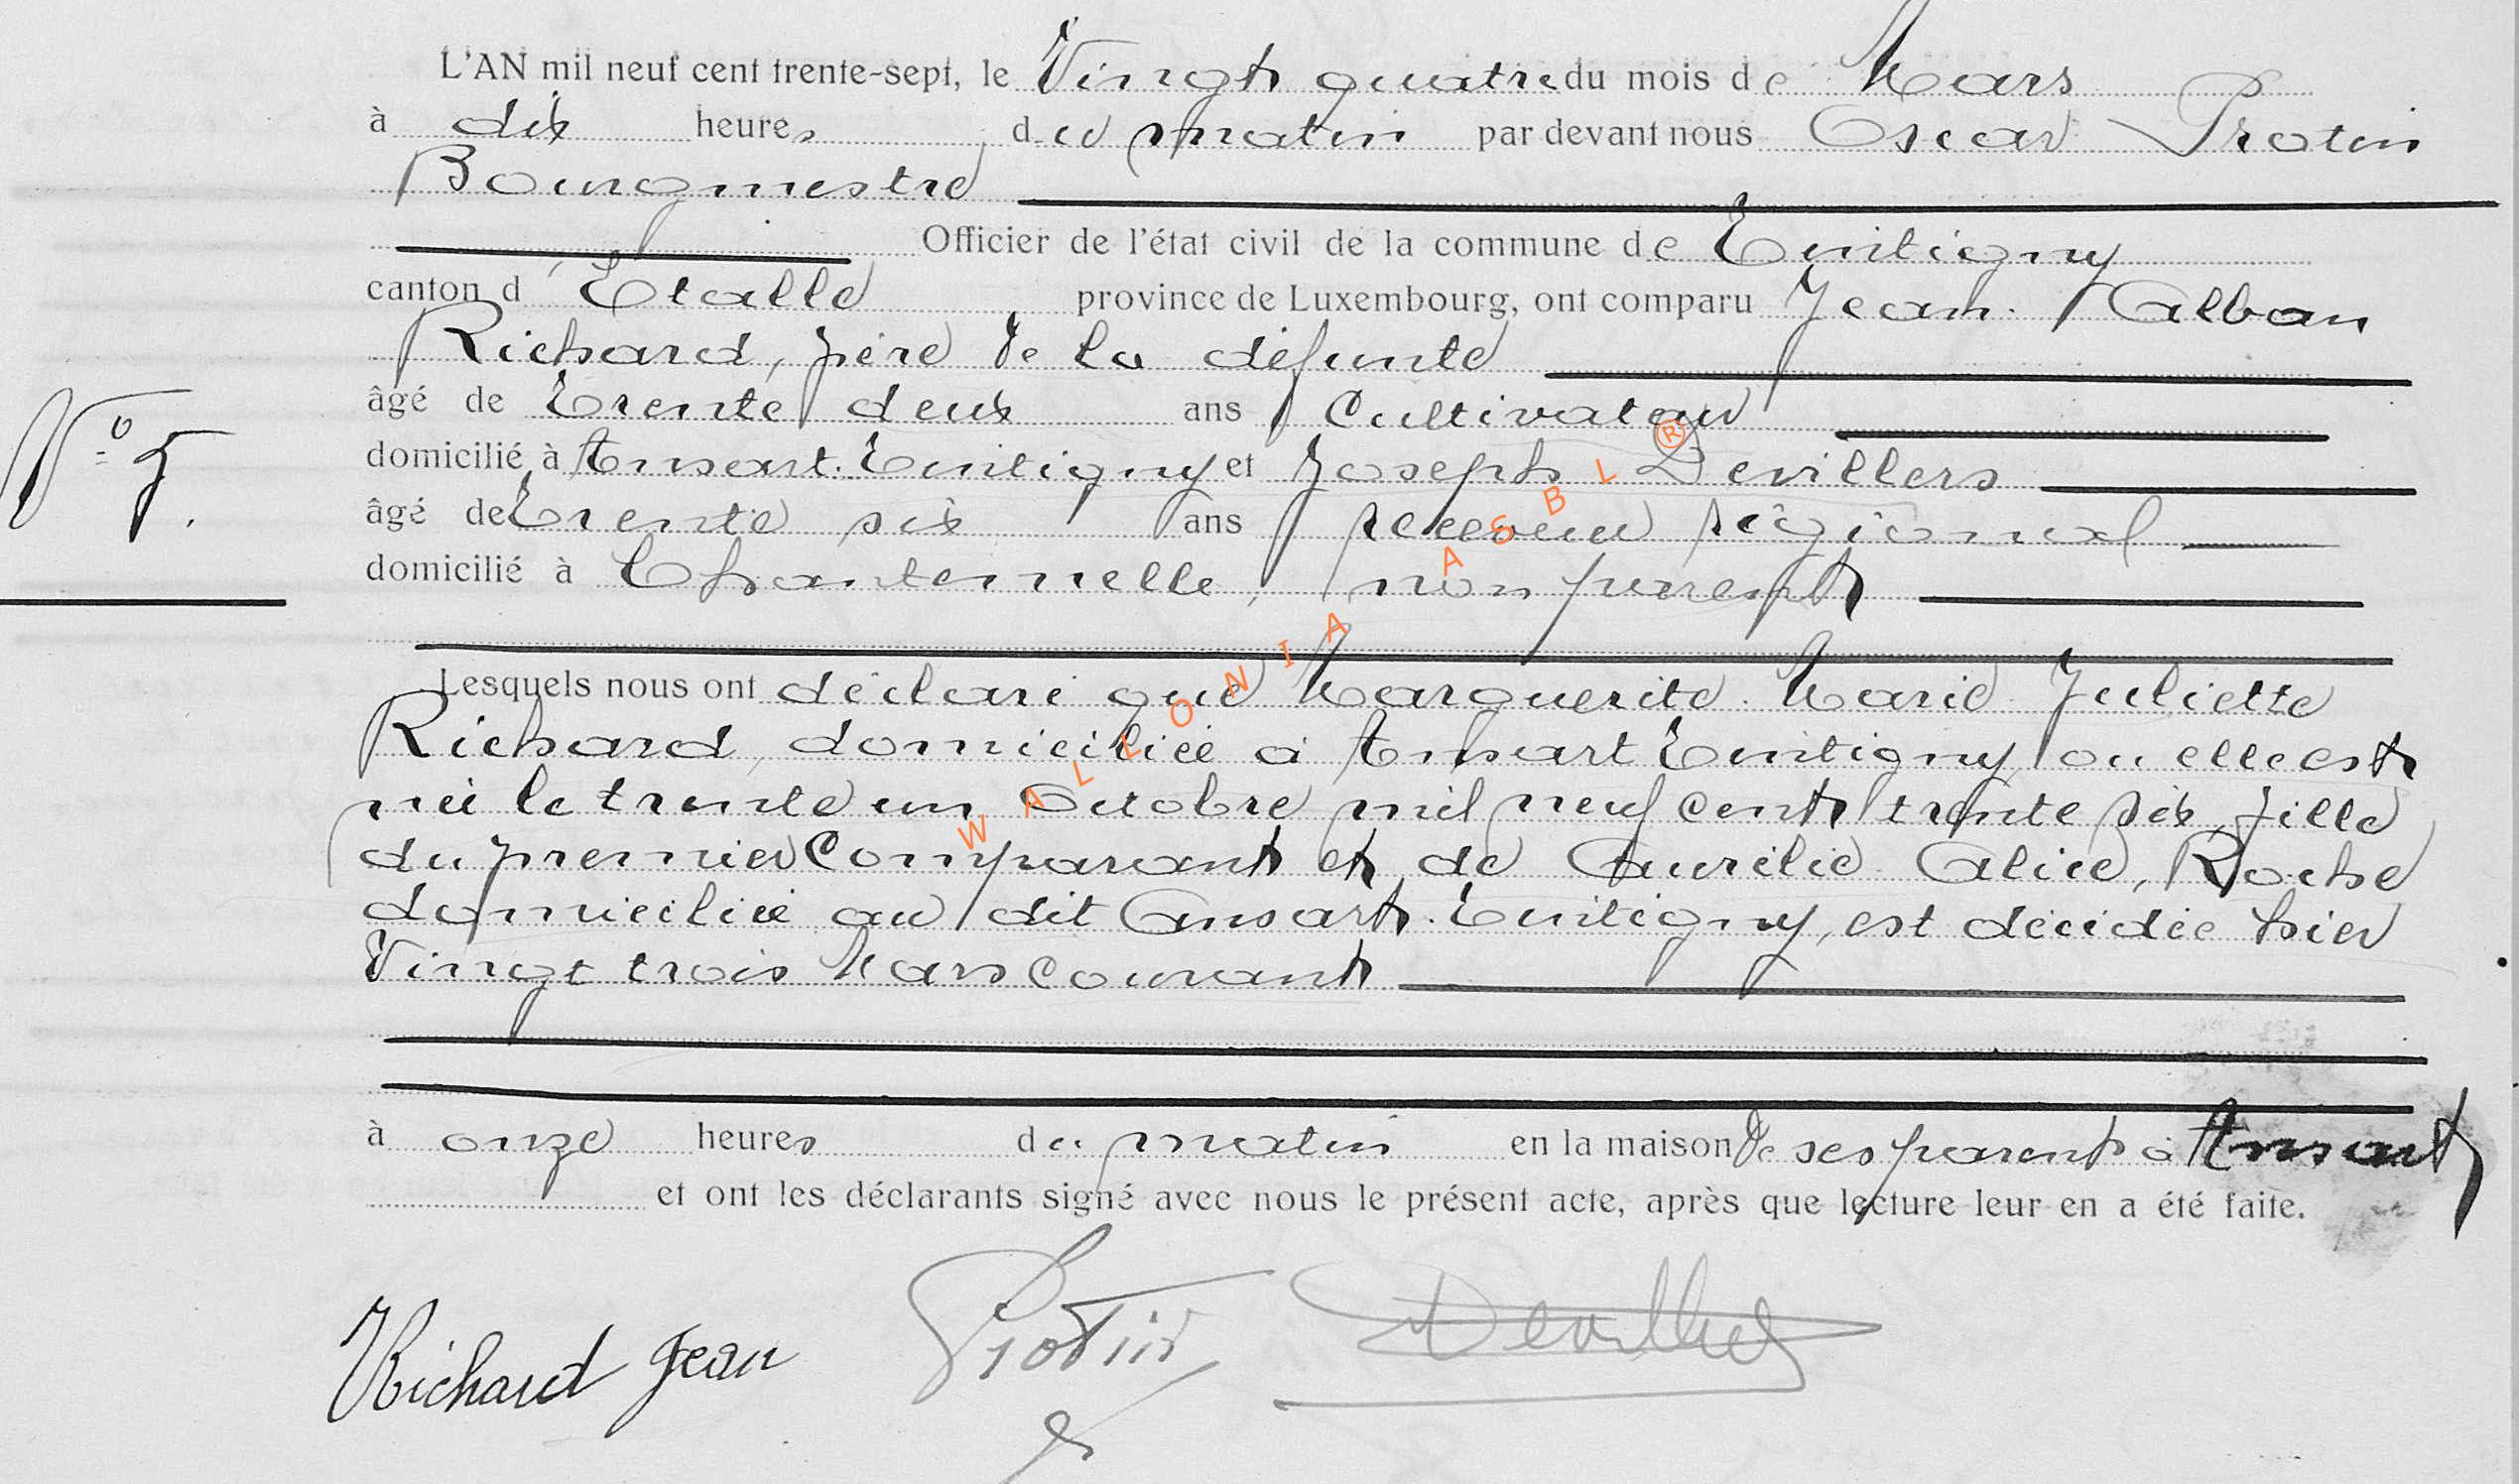 L'AN mil neuf cent trente-sept, le Vingt quatre du mois de Mars
à dix heures du matin par devant nous Oscar Protin
Bourgmestre
Officier de l'état civil de la commune de Tintigny
canton d'Etalle province de Luxembourg, ont comparu Jean Alban
Richard, père de la défunte
âgé de trente deux ans Cultivateur
domicilié à Ansart-Tintigny et Joseph Devillers
âgé de trente six ans receveur régional
N° 5.
domicilié à Chantemelle, non parent
Lesquels nous ont déclaré que Marguerite Marie Juliette
Richard, domiciliée à Ansart Tintigny, ou elle est
née le trente un Octobre mil neuf cent trente six, fille
du premier Comparant et de Aurélie Alice, Roche
domiciliée au dit Ansart-Tintigny, est décédée hier
Vingt trois Mars courant
à onze heures du matin en la maison de ses parents à Ansart
et ont les déclarants signé avec nous le présent acte, après que lecture leur en a été faite.
Richard Jean Protin Devillers
WALLONIA ASBL ®